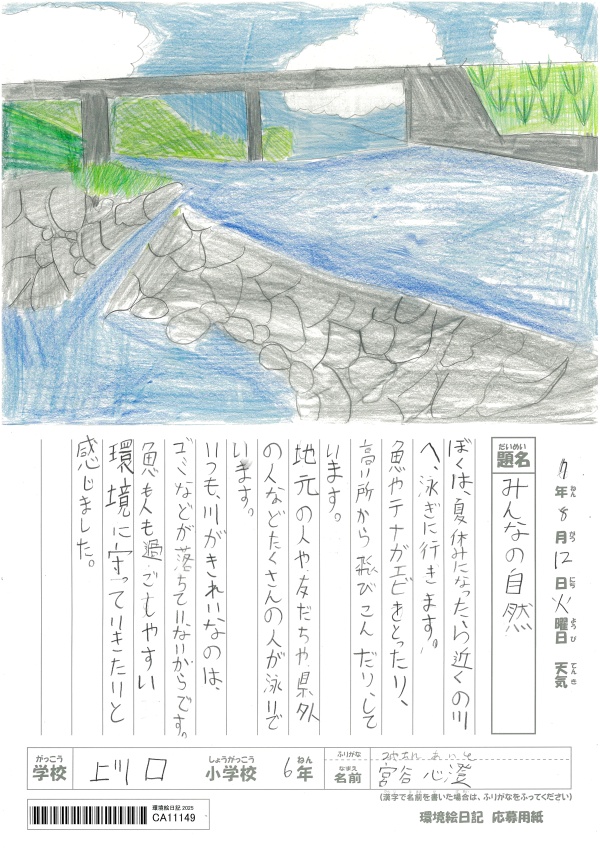 7年8月12日火曜日 天気
ねん がつ にち ようび てんき
だいめい
題名 みんなの自然
ぼくは、夏休みになったら近くの川
へ、泳ぎに行きます。
魚やテナガエビをとったり、
高い所から飛びこんだりして
います。
地元の人や友だちや県外
の人などたくさんの人が泳いで
います。
いつも、川がきれいなのは、
ゴミなどが落ちていないからです。
魚も人も過ごしやすい
環境に守っていきたいと
感じました。
がっこう しょうがっこう ねん ふりがな
学校 上川口 小学校 6年
なまえ
名前 宮谷 心澄
(漢字で名前を書いた場合は、ふりがなをふってください)
環境絵日記 2025
CA11149
環境絵日記 応募用紙